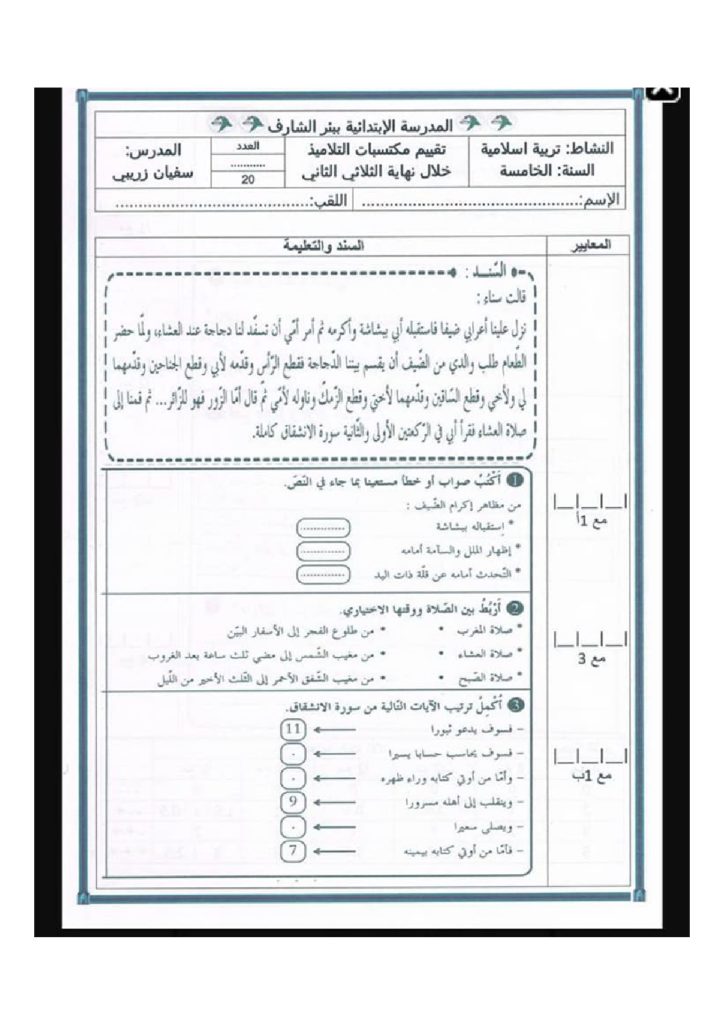 المدرسة الإبتدائية ببئر الشارف
النشاط: تربية اسلامية
السنة: الخامسة
تقييم مكتسبات التلاميذ
خلال نهاية الثلاثي الثاني
العدد
...........
20
المدرس:
سفيان زريبي
الإسم:............................................... اللقب:..........................................
المعايير
السند والتعليمة
السّنــد :
قالت سناء :
نزل علينا أعرابي ضيفا فاستقبله أبي ببشاشة وأكرمه ثم أمر أمّي أن تسفّد لنا دجاجة عند العشاء، ولمّا حضر
الطّعام طلب والدي من الضّيف أن يقسم بيننا الدّجاجة فقطع الرّأس وقدّمه لأبي وقطع الجناحين وقدّمهما
لي ولأخي وقطع السّاقين وقدّمهما لأختيّ وقطع الزّمكّ وناوله لأمّي ثمّ قال أمّا الزّور فهو للزّائر... ثم قمنا إلى
صلاة العشاء فقرأ أبي في الرّكعتين الأولى والثّانية سورة الانشقاق كاملة.
1 أَكْتُبُ صواب أو خطأ مستعينا بما جاء في النّصّ.
من مظاهر إكرام الضّيف :
* إستقباله ببشاشة ............
* إظهار الملل والسآمة أمامه ............
* التّحدث أمامه عن قلّة ذات اليد ............
مع 1أ
2 أَرْبُطُ بين الصّلاة ووقتها الاختياري.
* صلاة المغرب • • من طلوع الفجر إلى الأسفار البيّن
* صلاة العشاء • • من مغيب الشّمس إلى مضي ثلث ساعة بعد الغروب
* صلاة الصّبح • • من مغيب الشّفق الأحمر إلى الثّلث الأخير من اللّيل
مع 3
3 أُكْمِلُ ترتيب الآيات التّالية من سورة الانشقاق.
- فسوف يدعو ثبورا 11
- فسوف يحاسب حسابا يسيرا .
- وأمّا من أوتي كتابه وراء ظهره .
- وينقلب إلى أهله مسرورا 9
- ويصلى سعيرا .
- فأمّا من أوتي كتابه بيمينه 7
مع 1ب